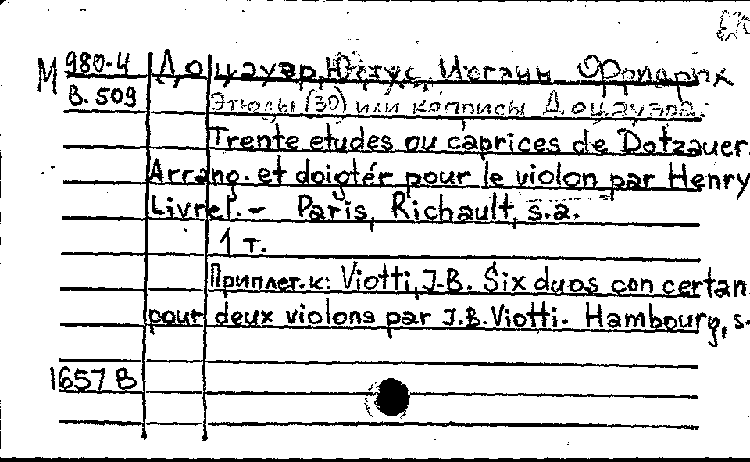 М 980-4 Доцауэр, Юстус, Иоганн Фридрих
В. 509 Этюды (30) или каприсы Доцауэра.
Trente etudes ou caprices de Dotzauer.
Arrang. et doigtér pour le violon par Henry
Livre I. — Paris, Richault, s.a.
1 т.
Приплет. к: Viotti, J.B. Six duos con certan
pour deux violons par J.B. Viotti. Hambourg, s.
1657 В